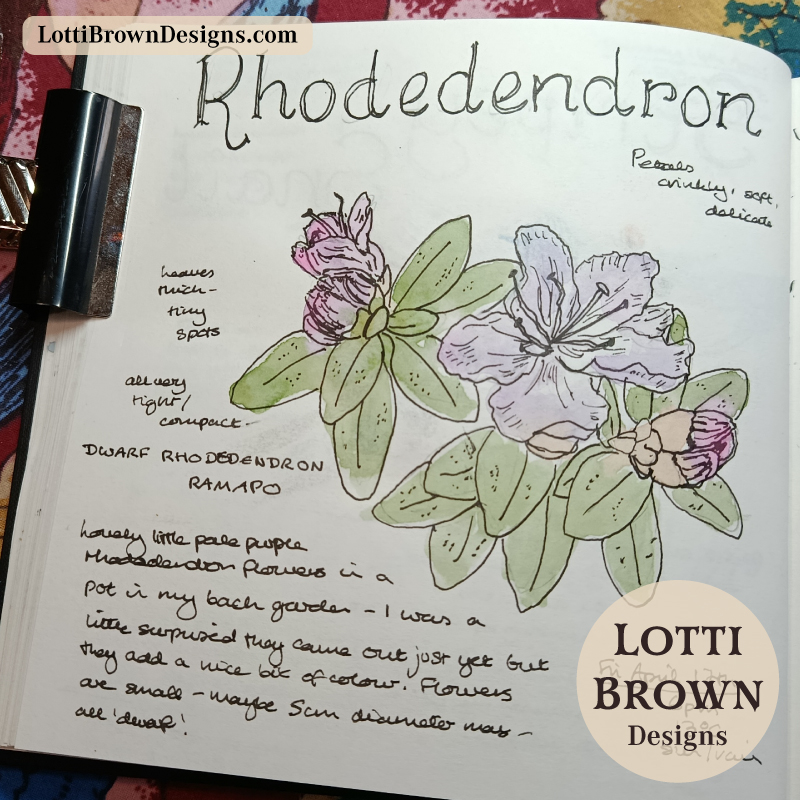 LottiBrownDesigns.com
Rhodedendron
Petals
crinkly, soft,
delicate
leaves
thick -
tiny
spots
all very
tight/
compact -
DWARF RHODEDENDRON
RAMAPO
Lovely little pale purple
rhododendron flowers in a
pot in my back garden - I was a
little surprised they came out just yet but
they add a nice bit of colour. Flowers
are small - maybe 5cm diameter max -
all 'dwarf'!
LOTTI
BROWN
Designs
Fri April